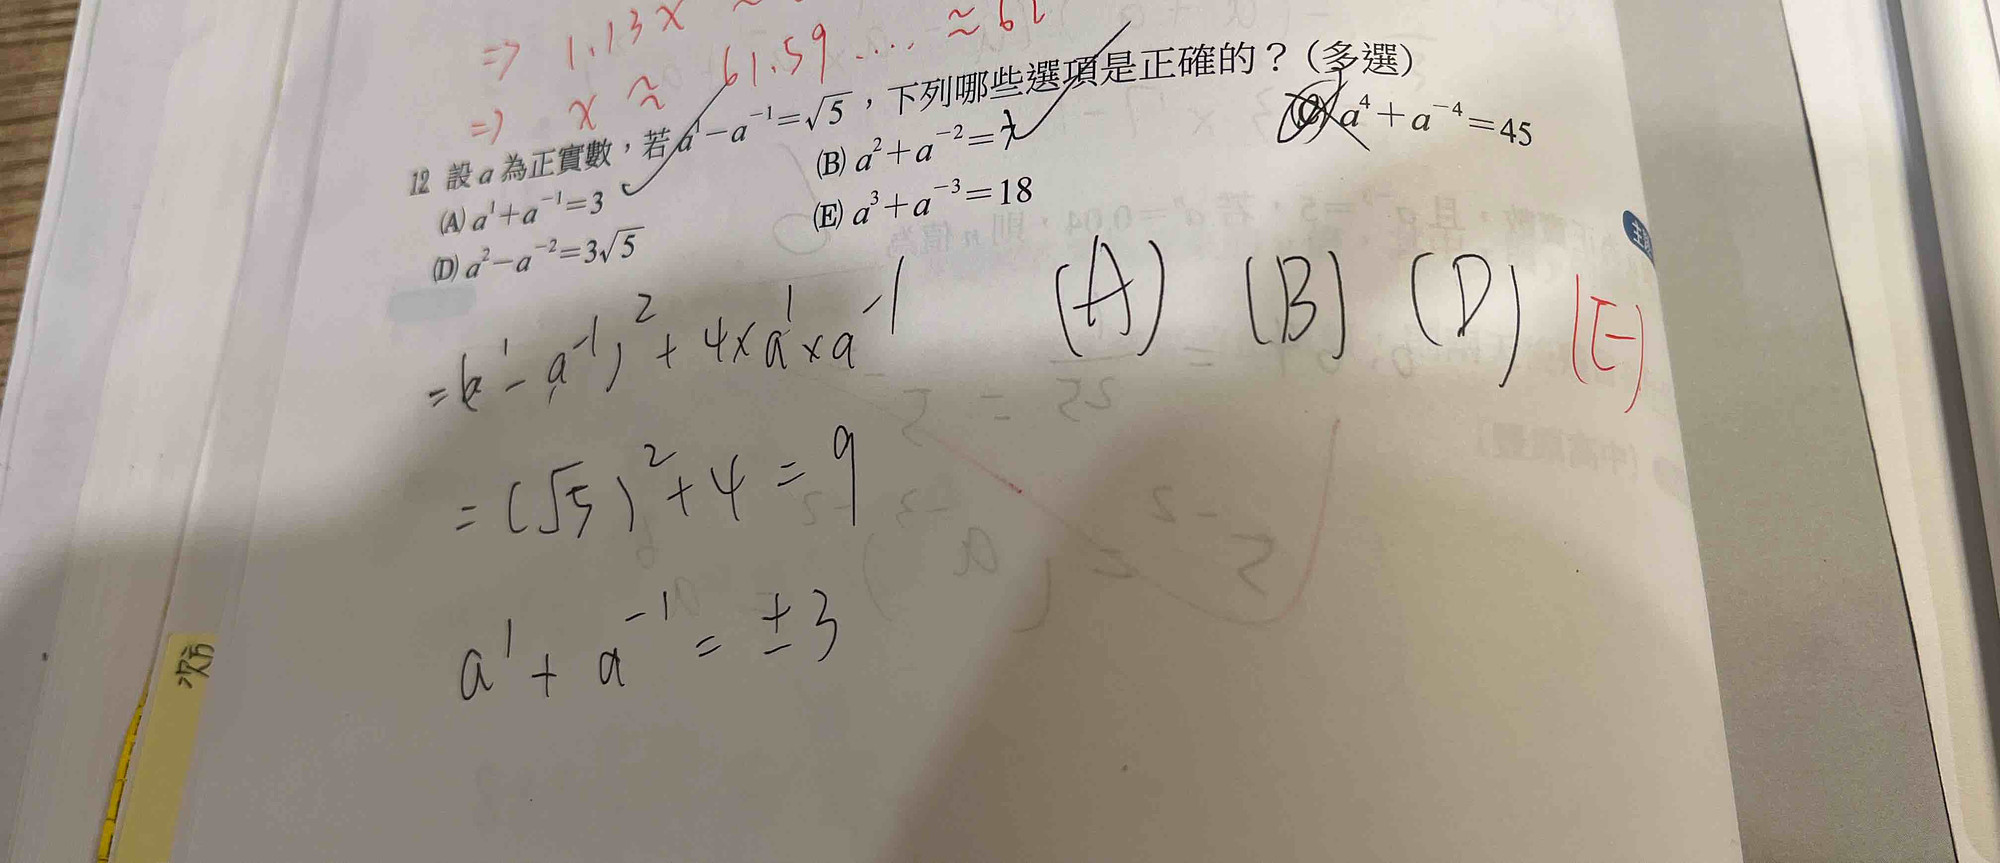 ⇒ 1.13x ≈
⇒ x ≈ 61.59... ≈ 62
12 設 a 為正實數，若 a¹−a⁻¹=√5，下列哪些選項是正確的？（多選）
(A) a¹+a⁻¹=3 (B) a²+a⁻²=7 (C) a⁴+a⁻⁴=45
(D) a²−a⁻²=3√5 (E) a³+a⁻³=18
(A) (B) (D) (E)
=(a¹−a⁻¹)²+4×a¹×a⁻¹
=(√5)²+4=9
a¹+a⁻¹=±3
次方